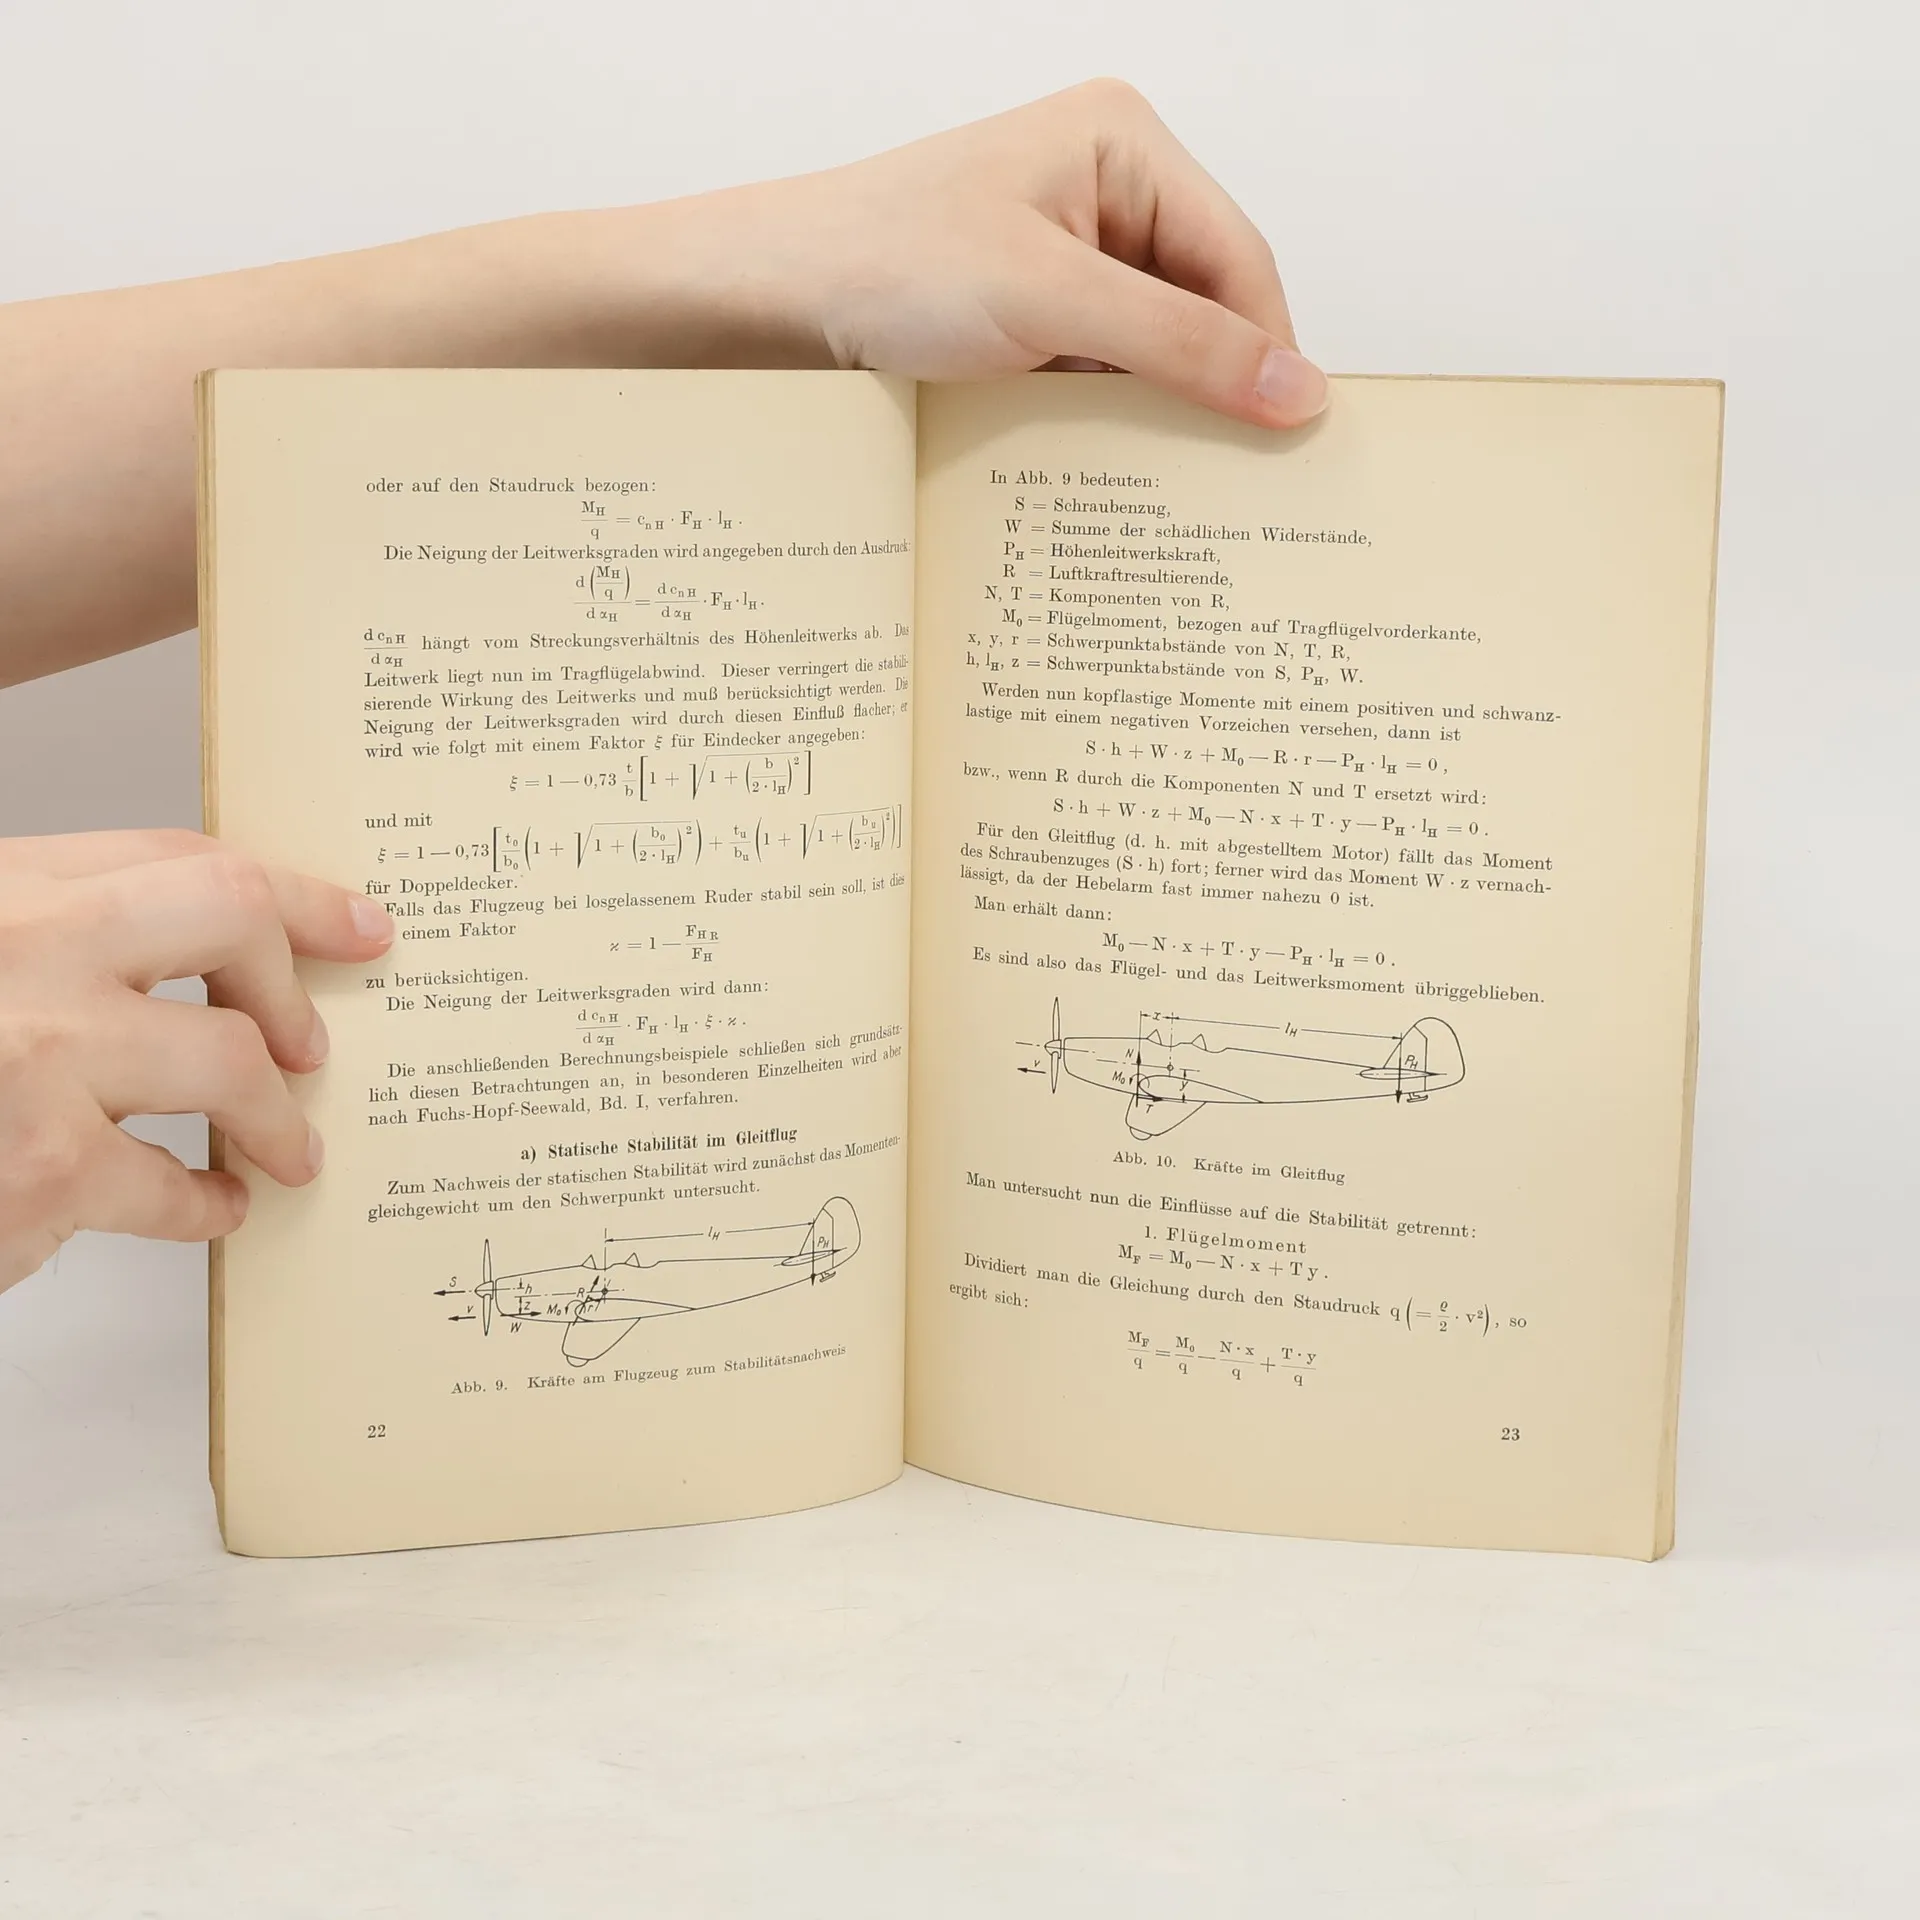 oder auf den Staudruck bezogen:
M_H / q = c_nH · F_H · l_H .
Die Neigung der Leitwerksgraden wird angegeben durch den Ausdruck:
d (M_H / q) / d α_H = d c_nH / d α_H · F_H · l_H .
d c_nH / d α_H hängt vom Streckungsverhältnis des Höhenleitwerks ab. Das
Leitwerk liegt nun im Tragflügelabwind. Dieser verringert die stabili-
sierende Wirkung des Leitwerks und muß berücksichtigt werden. Die
Neigung der Leitwerksgraden wird durch diesen Einfluß flacher; er
wird wie folgt mit einem Faktor ξ für Eindecker angegeben:
ξ = 1 — 0,73 t/b [1 + √(1 + (b / 2 · l_H)²)]
und mit
ξ = 1 — 0,73 [t_o/b_o (1 + √(1 + (b_o / 2 · l_H)²)) + t_u/b_u (1 + √(1 + (b_u / 2 · l_H)²))]
für Doppeldecker.
Falls das Flugzeug bei losgelassenem Ruder stabil sein soll, ist dies
einem Faktor
ϰ = 1 — F_HR / F_H
zu berücksichtigen.
Die Neigung der Leitwerksgraden wird dann:
d c_nH / d α_H · F_H · l_H · ξ · ϰ .
Die anschließenden Berechnungsbeispiele schließen sich grundsätz-
lich diesen Betrachtungen an, in besonderen Einzelheiten wird aber
nach Fuchs-Hopf-Seewald, Bd. I, verfahren.
a) Statische Stabilität im Gleitflug
Zum Nachweis der statischen Stabilität wird zunächst das Momenten-
gleichgewicht um den Schwerpunkt untersucht.
l_H
P_H
S
h
R
v
z
M_0
r
W
Abb. 9. Kräfte am Flugzeug zum Stabilitätsnachweis
22
In Abb. 9 bedeuten:
S = Schraubenzug,
W = Summe der schädlichen Widerstände,
P_H = Höhenleitwerkskraft,
R = Luftkraftresultierende,
N, T = Komponenten von R,
M_0 = Flügelmoment, bezogen auf Tragflügelvorderkante,
x, y, r = Schwerpunktabstände von N, T, R,
h, l_H, z = Schwerpunktabstände von S, P_H, W.
Werden nun kopflastige Momente mit einem positiven und schwanz-
lastige mit einem negativen Vorzeichen versehen, dann ist
S · h + W · z + M_0 — R · r — P_H · l_H = 0 ,
bzw., wenn R durch die Komponenten N und T ersetzt wird:
S · h + W · z + M_0 — N · x + T · y — P_H · l_H = 0 .
Für den Gleitflug (d. h. mit abgestelltem Motor) fällt das Moment
des Schraubenzuges (S · h) fort; ferner wird das Moment W · z vernach-
lässigt, da der Hebelarm fast immer nahezu 0 ist.
Man erhält dann:
M_0 — N · x + T · y — P_H · l_H = 0 .
Es sind also das Flügel- und das Leitwerksmoment übriggeblieben.
x
l_H
N
P_H
v
M_0
y
T
Abb. 10. Kräfte im Gleitflug
Man untersucht nun die Einflüsse auf die Stabilität getrennt:
1. Flügelmoment
M_F = M_0 — N · x + T y .
Dividiert man die Gleichung durch den Staudruck q (= ϱ/2 · v²), so
ergibt sich:
M_F / q = M_0 / q — N · x / q + T · y / q
23